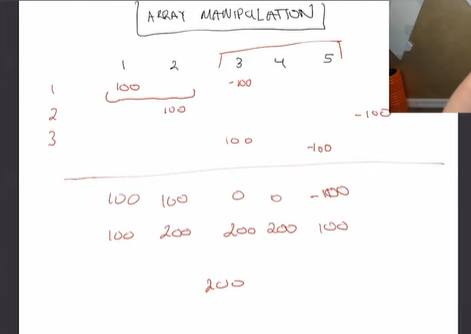 ARRAY MANIPULATION
1 2 3 4 5
1 100 -100
2 100 -100
3 100 -100
100 100 0 0 -100
100 200 200 200 100
200